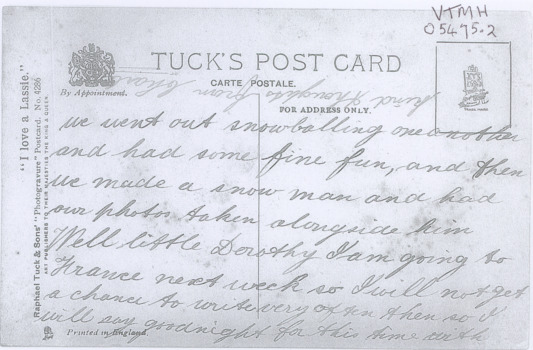 VTMH
05475.2
TUCK'S POST CARD
CARTE POSTALE.
By Appointment.
FOR ADDRESS ONLY.
kind thoughts from
we went out snowballing one another
and had some fine fun, and then
we made a snow man and had
our photos taken alongside him
Well little Dorothy I am going to
France next week so I will not get
a chance to write very often then so I
will say goodnight for this time with
Printed in England.
"I love a Lassie."
Raphael Tuck & Sons' "Photogravure" Postcard. No. 4286
ART PUBLISHERS TO THEIR MAJESTIES THE KING & QUEEN.